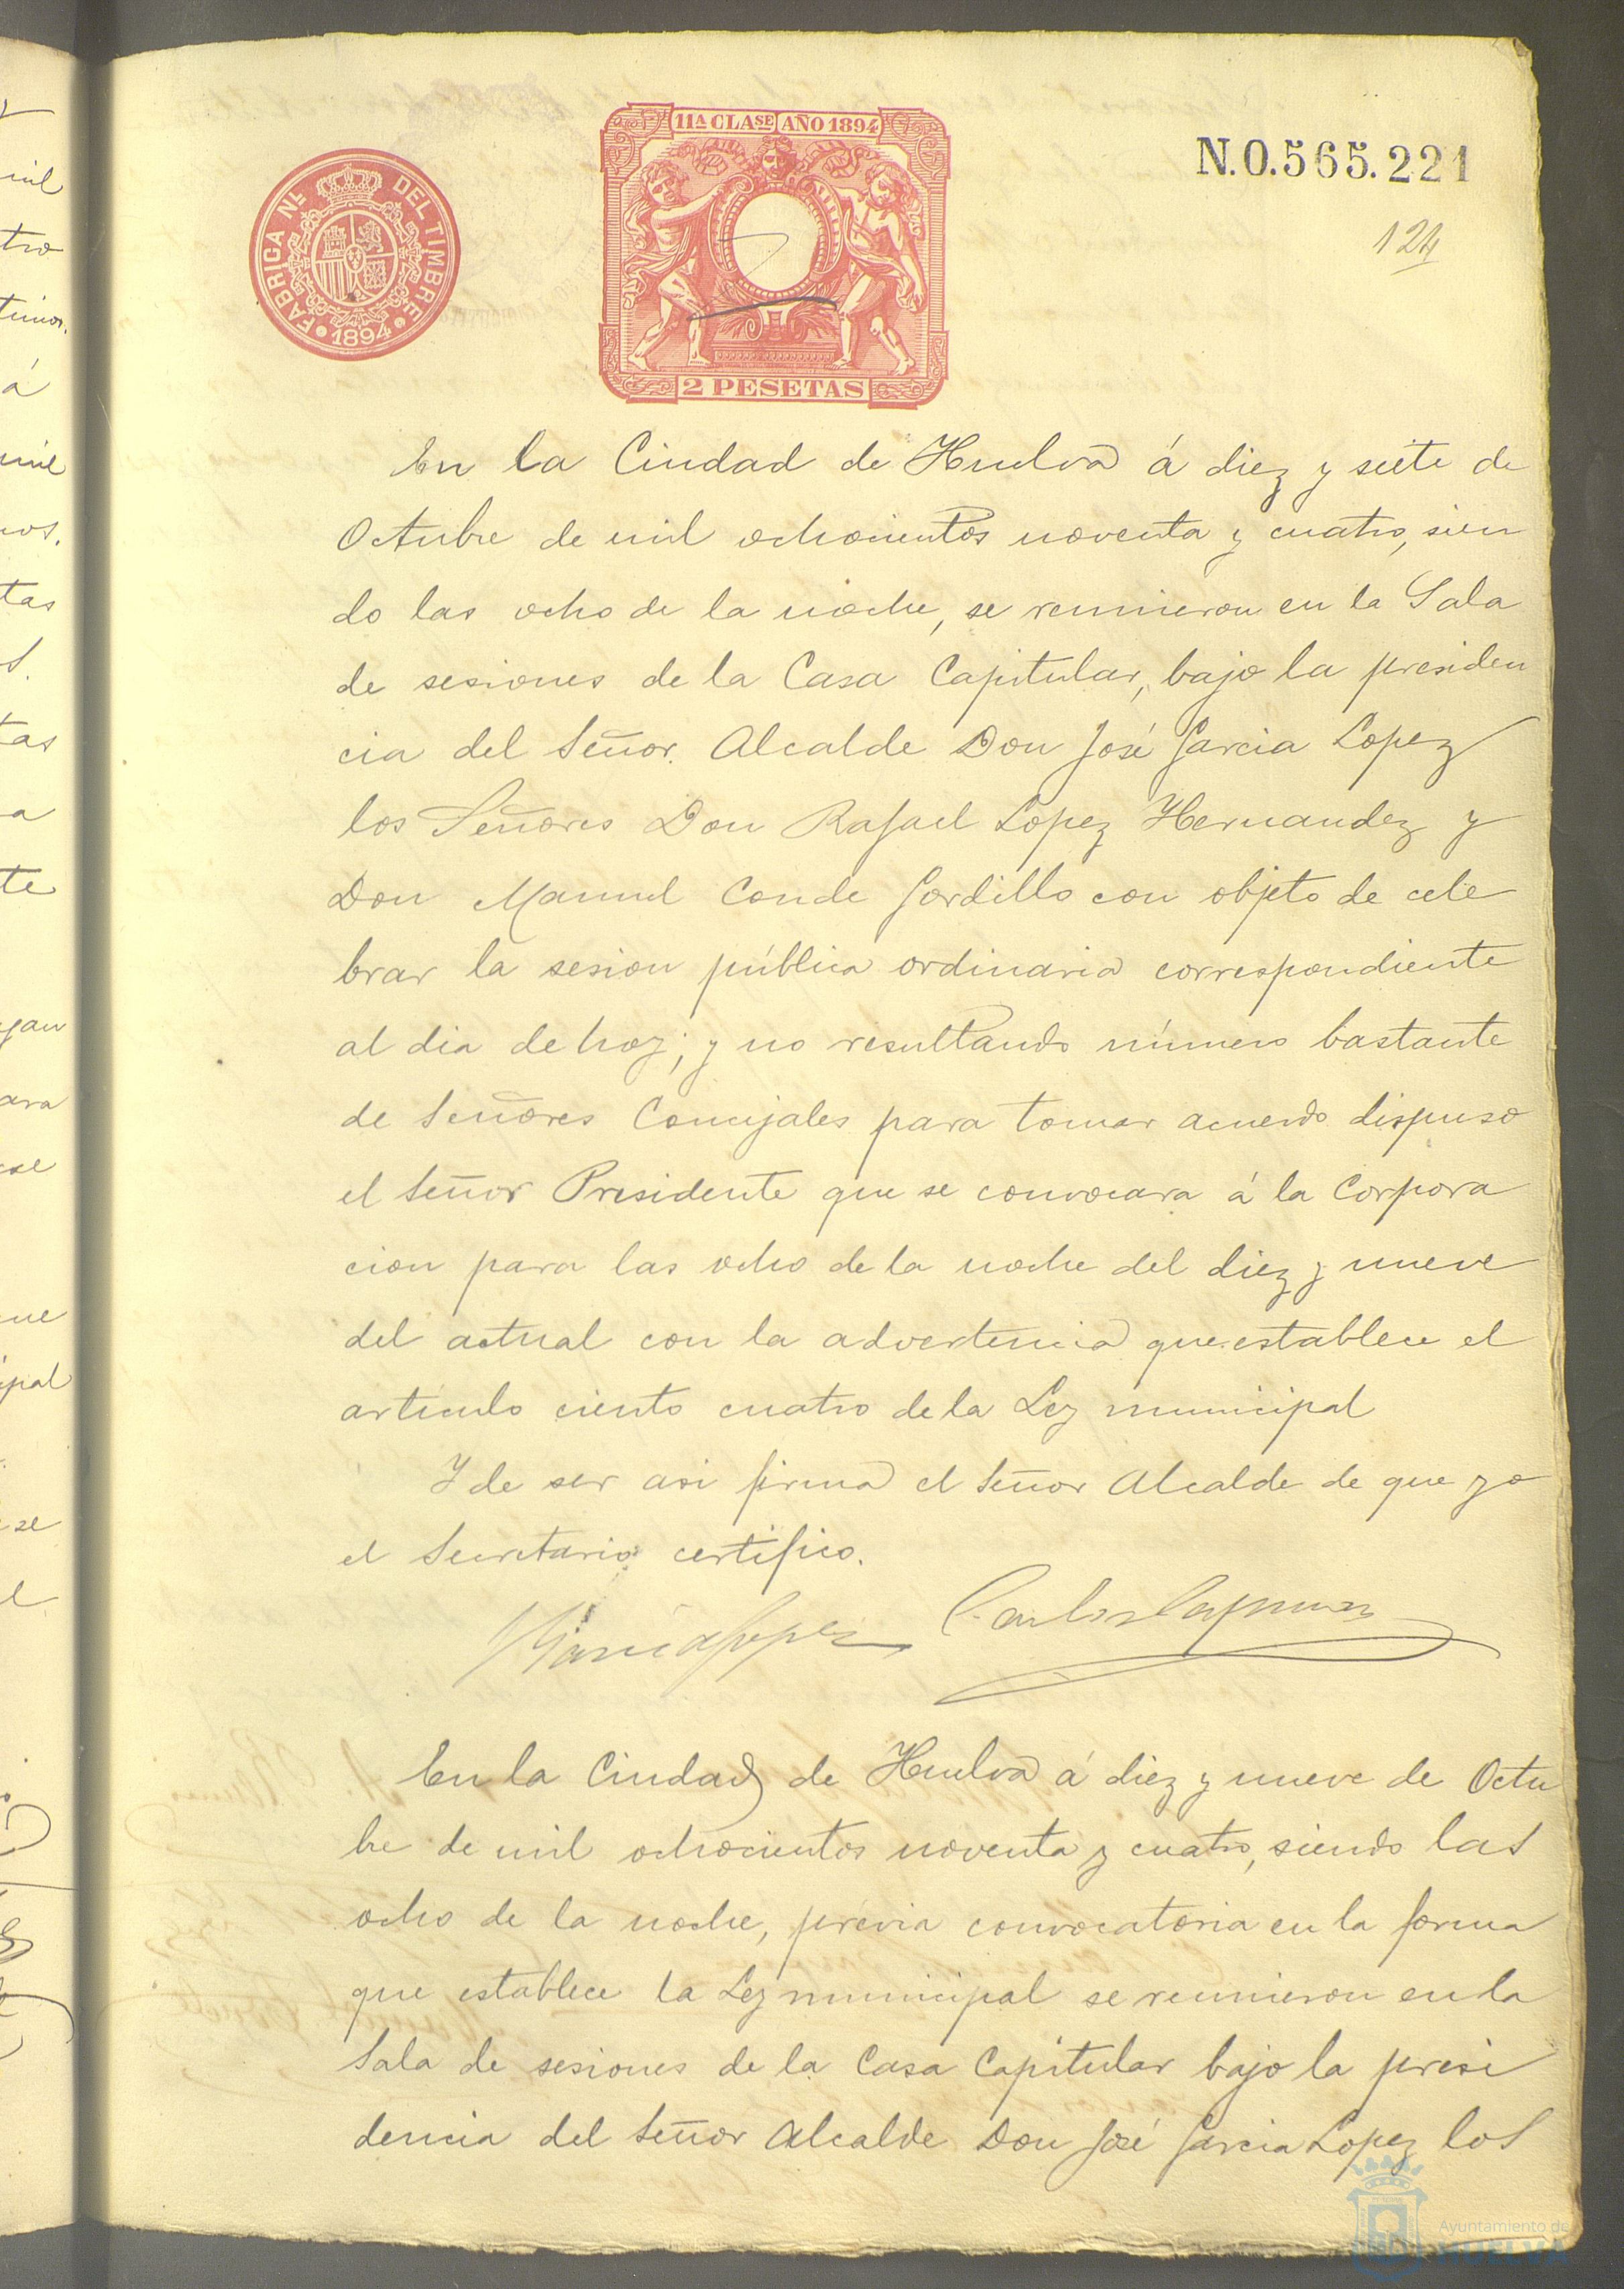 11ª CLASE AÑO 1894
FABRICA Nal DEL TIMBRE
1894
2 PESETAS
N.0.565.221
124
En la Ciudad de Huelva á diez y siete de
Octubre de mil ochocientos noventa y cuatro, sien
do las ocho de la noche, se reunieron en la Sala
de sesiones de la Casa Capitular, bajo la presiden
cia del Señor Alcalde Don José Garcia Lopez
los Señores Don Rafael Lopez Hernandez y
Don Manuel Conde Gordillo con objeto de cele
brar la sesion pública ordinaria correspondiente
al dia de hoy; y no resultando número bastante
de Señores Concejales para tomar acuerdo dispuso
el Señor Presidente que se convocara á la Corpora
cion para las ocho de la noche del diez y nueve
del actual con la advertencia que establece el
articulo ciento cuatro de la Ley municipal
Y de ser asi firma el Señor Alcalde de que yo
el Secretario certifico.
Garcia Lopez Carlos
En la Ciudad de Huelva á diez y nueve de Octu
bre de mil ochocientos noventa y cuatro, siendo las
ocho de la noche, prévia convocatoria en la forma
que establece la Ley municipal se reunieron en la
Sala de sesiones de la Casa Capitular bajo la presi
dencia del Señor Alcalde Don José Garcia Lopez los
Ayuntamiento de
HUELVA